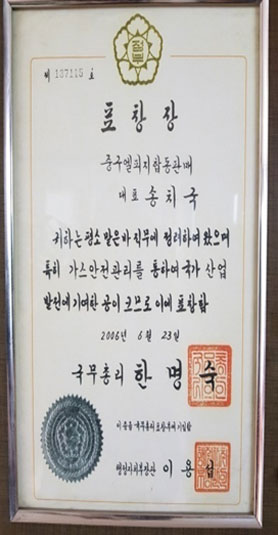 제 137115 호
표창장
중구엘피지합동판매
대표 송치국
귀하는 평소 맡은바 직무에 정려하여 왔으며
특히 가스안전관리를 통하여 국가 산업
발전에 기여한 공이 크므로 이에 표창함
2006년 6월 23일
국무총리 한명숙
이 증을 국무총리표창부에 기입함
행정자치부장관 이용섭